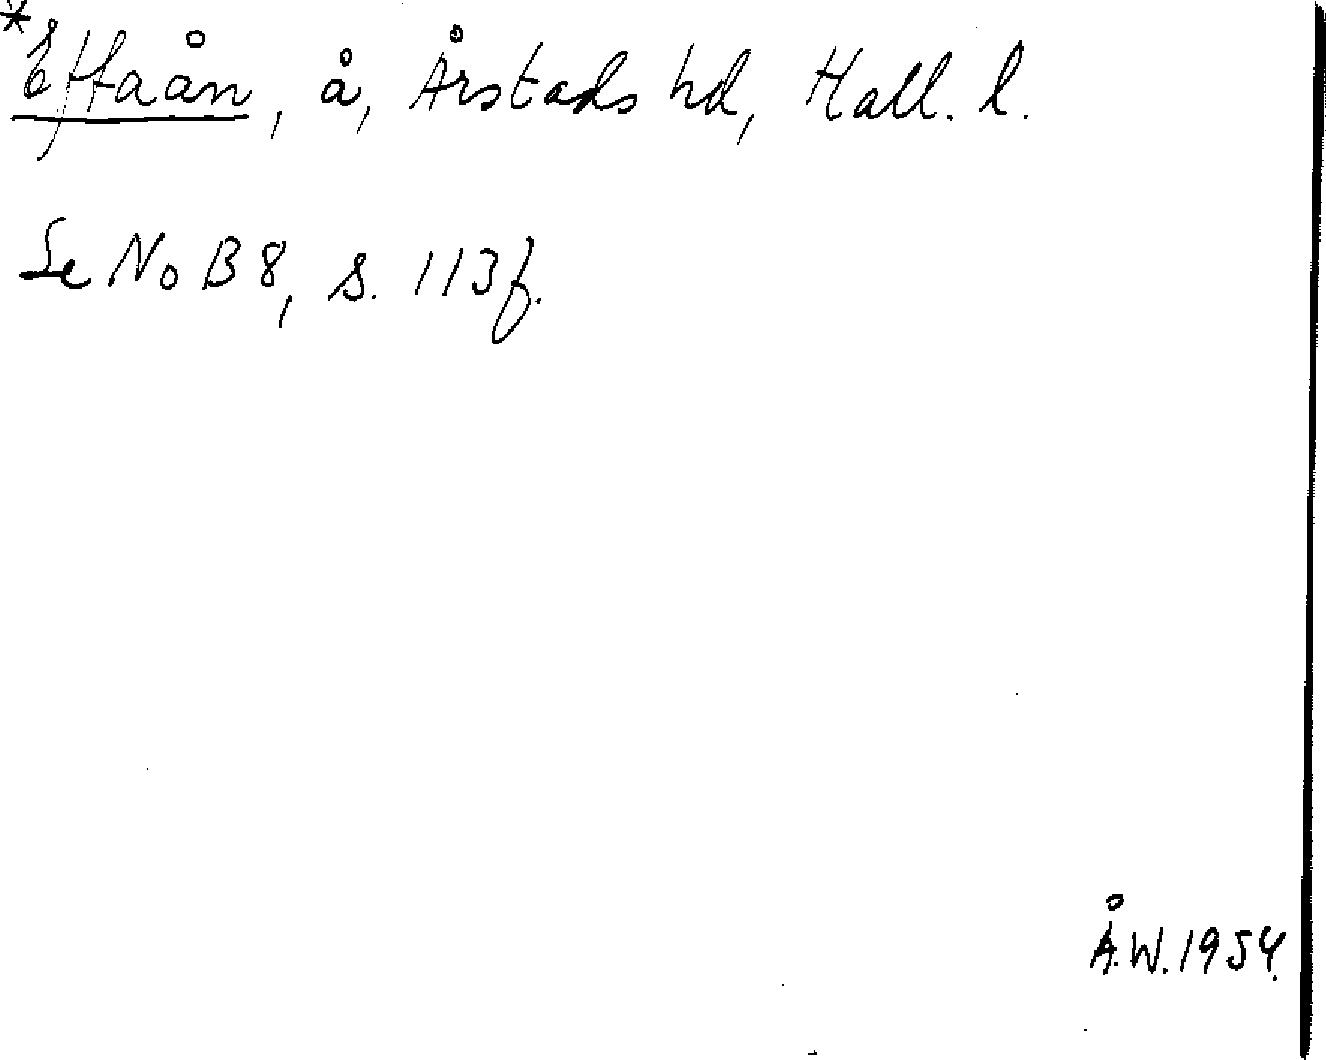 *Ettaån, å, Årstads hd, Hall. l.
Se NoB 8, s. 113 f.
Å.W. 1954.